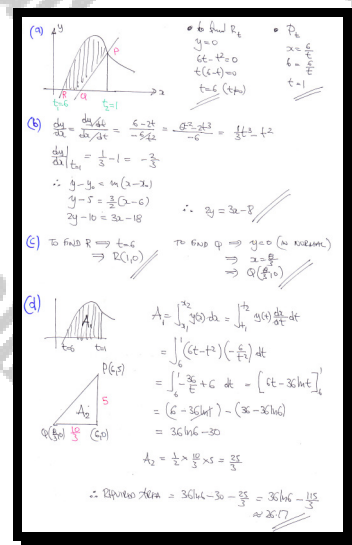 (a)
y
P
R
Q
x
t=6
t=1
• to find R,
y=0
6t-t²=0
t(6-t)=0
t=6 (t≠0)
• P,
x=6/t
6=6/t
t=1
(b) dy/dx = (dy/dt)/(dx/dt) = (6-2t)/(-6/t²) = (6t²-2t³)/-6 = 1/3t³-t²
dy/dx|t=1 = 1/3 - 1 = -2/3
∴ y-y₀ = m(x-x₀)
y-5 = 3/2(x-6)
2y-10 = 3x-18
∴ 2y=3x-8
(c) TO FIND R ⇒ t=6
⇒ R(1,0)
TO FIND Q ⇒ y=0 (IN NORMAL)
⇒ x=8/3
⇒ Q(8/3,0)
(d)
A₁
t=6 t=1
A₁ = ∫ y(x) dx = ∫ y(t) dx/dt dt
= ∫ (6t-t²)(-6/t²) dt
= ∫ -36/t + 6 dt = [6t-36lnt]
= (6-36ln1) - (36-36ln6)
= 36ln6-30
P(6,5)
5
A₂
Q(8/3,0) 10/3 (6,0)
A₂ = 1/2 × 10/3 × 5 = 25/3
∴ REQUIRED AREA = 36ln6-30-25/3 = 36ln6 - 115/3
≈ 26.17